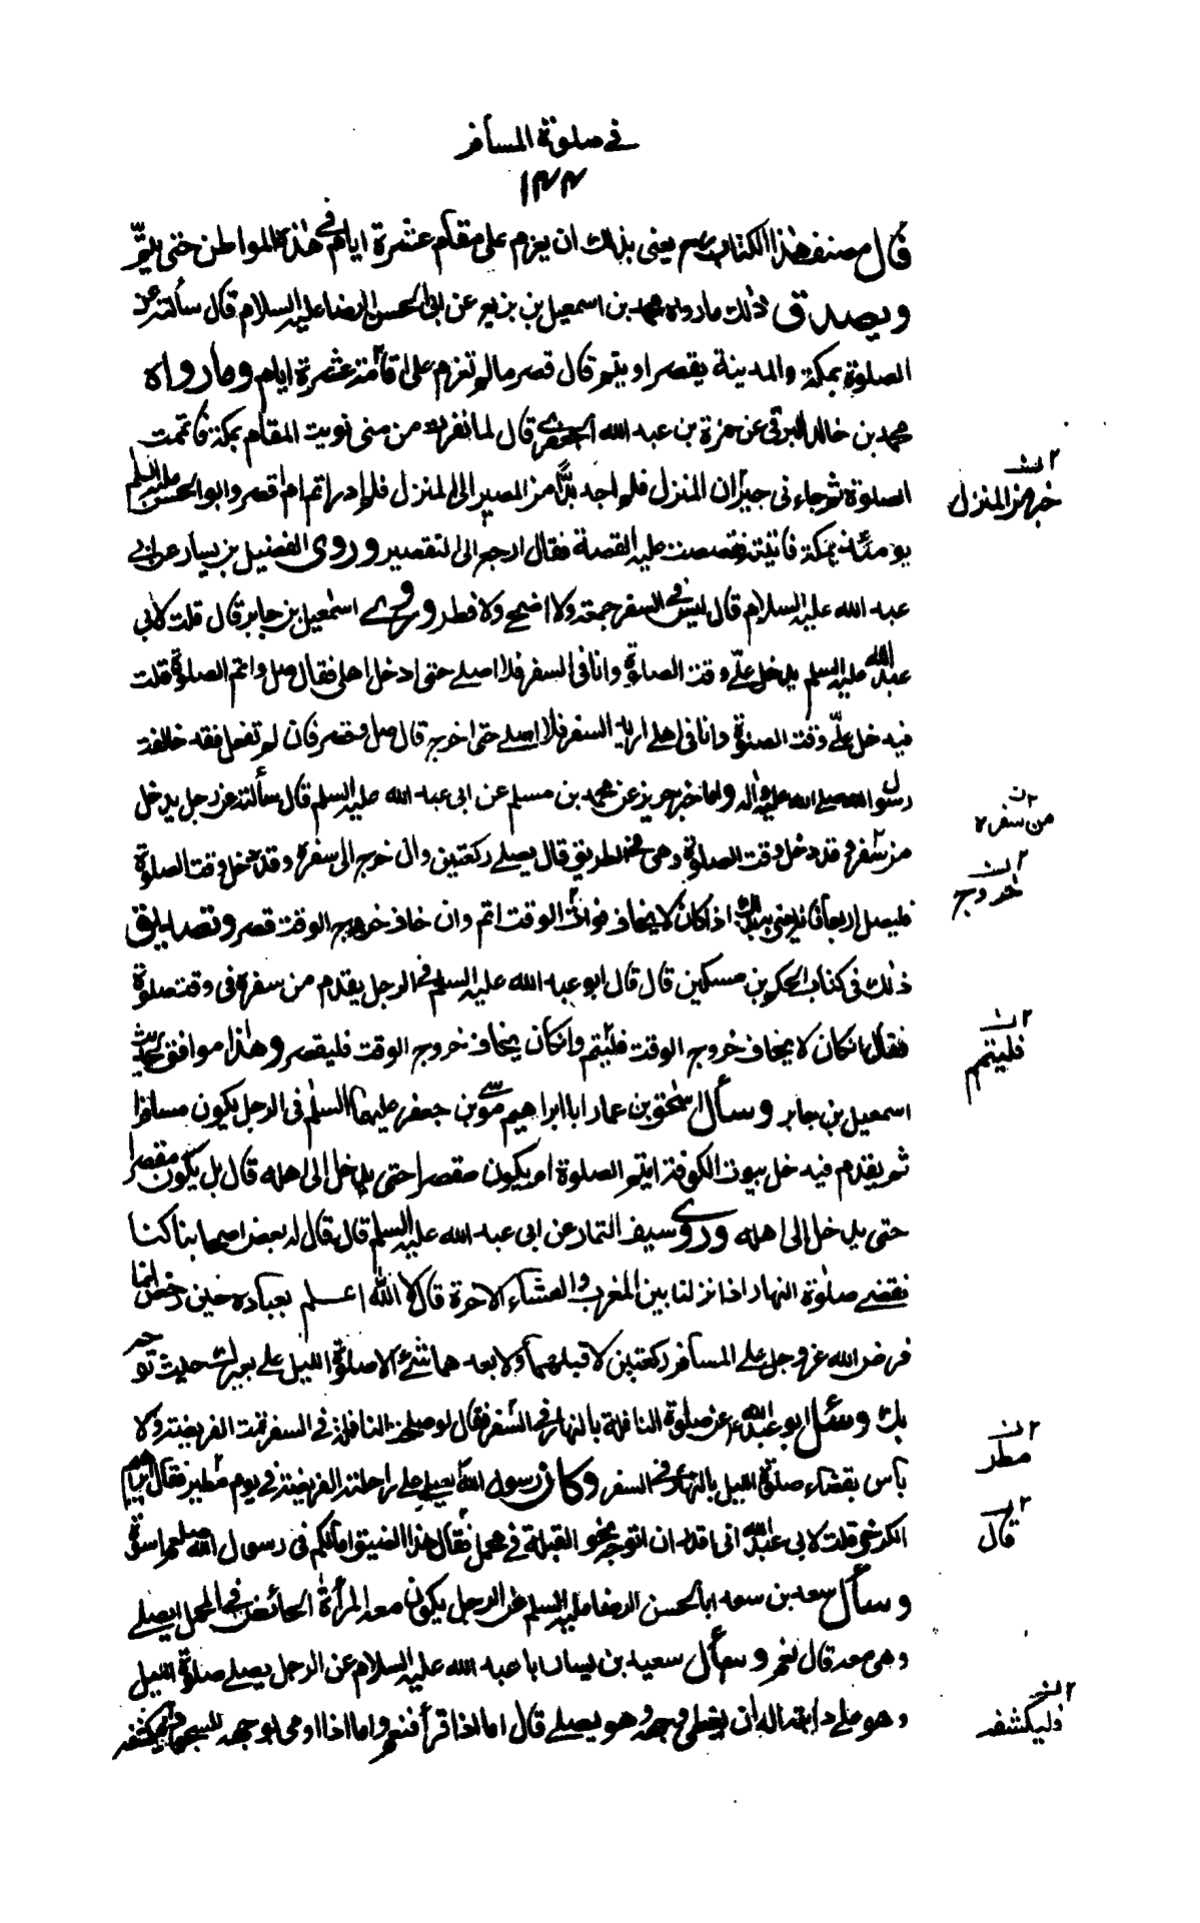 في صلوة المسافر
١٤٤
قال مصنف هذا الكتاب ره يعني بذلك ان يعزم على مقام عشرة ايام في هذه المواطن حتى يتمّ
ويصدق ذلك ما رواه محمد بن اسمعيل بن بزيع عن ابي الحسن الرضا عليه السلام قال سألته عن
الصلوة بمكة والمدينة يقصر او يتم قال قصر ما لم تعزم على اقامة عشرة ايام وما رواه
محمد بن خالد البرقي عن حمزة بن عبد الله الجعفري قال لما نفرت من منى نويت المقام بمكة فاتممت
الصلوة ثم جاءني خبر من المنزل فلم اجد بدّا من المصير الى المنزل فلم ادر اتم ام اقصر وابو الحسن عليه السلم
خبر من المنزل
يومئذ بمكة فاتيته فقصصت عليه القصة فقال ارجع الى التقصير وروى الفضيل بن يسار عن ابي
عبد الله عليه السلام قال ليس في السفر جمعة ولا اضحى ولا فطر وروى اسمعيل بن جابر قال قلت لابي
عبد الله عليه السلم يدخل عليّ وقت الصلوة وانا في السفر فلا اصلي حتى ادخل اهلي فقال صل واتم الصلوة قلت
فيدخل عليّ وقت الصلوة وانا في اهلي اريد السفر فلا اصلي حتى اخرج قال صل وقصر فان لم تفعل فقد خالفت
رسول الله صلى الله عليه واله واما خبر حريز عن محمد بن مسلم عن ابي عبد الله عليه السلم قال سألته عن رجل يدخل
من سفره
من سفره وقد دخل وقت الصلوة وهو في الطريق قال يصلي ركعتين وان خرج الى سفره وقد دخل وقت الصلوة
خروج
فليصل اربعا فانه يعني بذلك اذا كان لا يخاف فوات الوقت اتم وان خاف خروج الوقت قصر وتصديق
ذلك في كتاب الحكم بن مسكين قال قال ابو عبد الله عليه السلم في الرجل يقدم من سفره في وقت صلوة
فقال ان كان لا يخاف خروج الوقت فليتم وان كان يخاف خروج الوقت فليقصر وهذا موافق لحديث
فليتم
اسمعيل بن جابر وسأل اسحق بن عمار ابا ابراهيم موسى بن جعفر عليهما السلم في الرجل يكون مسافرا
ثم يقدم فيدخل بيوت الكوفة ايتم الصلوة ام يكون مقصرا حتى يدخل الى اهله قال بل يكون مقصرا
حتى يدخل الى اهله وروى سيف التمار عن ابي عبد الله عليه السلم قال قال له بعض اصحابنا كنا
نقضي صلوة النهار اذا نزلنا بين المغرب والعشاء الاخرة قال لا الله اعلم بعباده حين رخص انما
فرض الله عز وجل على المسافر ركعتين لا قبلهما ولا بعدهما شئ الا صلوة الليل على بعيرك حيث توجه
بك وسئل ابو عبد الله ع عن صلوة النافلة بالنهار في السفر فقال لو صلحت النافلة في السفر تمت الفريضة ولا
باس بقضاء صلوة الليل بالنهار في السفر وكان رسول الله يصلي على راحلته الفريضة في يوم مطير فقال ابراهيم
مطر
الكرخي قلت لابي عبد الله اني اقدر ان اتوجه نحو القبلة في محمل فقال هذا الضيق اما لكم في رسول الله صلعم اسوة
قال
وسأل سعد بن سعد ابا الحسن الرضا عليه السلم عن الرجل يكون معه المرأة الحائض في المحمل ايصلي
وهي معه قال نعم وسأل سعيد بن يسار ابا عبد الله عليه السلام عن الرجل يصلي صلوة الليل
وهو على دابته اله ان يغطي وجهه وهو يصلي قال اما اذا قرأ فنعم واما اذا اومى بوجهه للسجود فليكشفه
وليكشفه